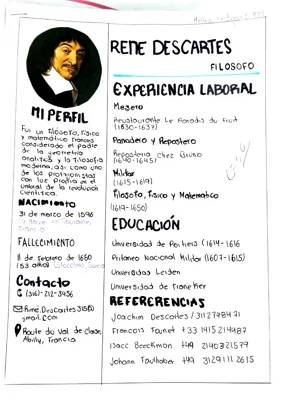 RENE DESCARTES
FILOSOFO
MI PERFIL
Fui un filósofo, físico
y matemático francés
considerado el padre
de la geometría
analítica y la filosofía
moderna, así como uno
de los protagonistas
con luz propia en el
umbral de la revolución
científica.
NACIMIENTO
31 de marzo de 1596
FALLECIMIENTO
11 de febrero de 1650
(53 años) Estocolmo, Suecia
Contacto
(316)-212-8456
Rene.Descartes315@
gmail.com
Route du Val de Claise,
Abilly, Francia
EXPERIENCIA LABORAL
Mesero
Restaurante Le Paradis du Fruit
(1630-1637)
Panadero y Repostero
Reposteria Chez Bruno
(1640-1645)
Militar
(1615-1619)
Filosofo, Fisico y Matematico
(1619-1650)
EDUCACIÓN
Universidad de Poitiers (1614-1616
Pritaneo Nacional Militar (1607-1615)
Universidad Leiden
Universidad de Franeker
REFERERENCIAS
Joachim Descartes / 3112798471
Francois Tounet +33 1415214987
Isacc Beeckman +49 2140321579
Johann Faulhaber +49 31291112615